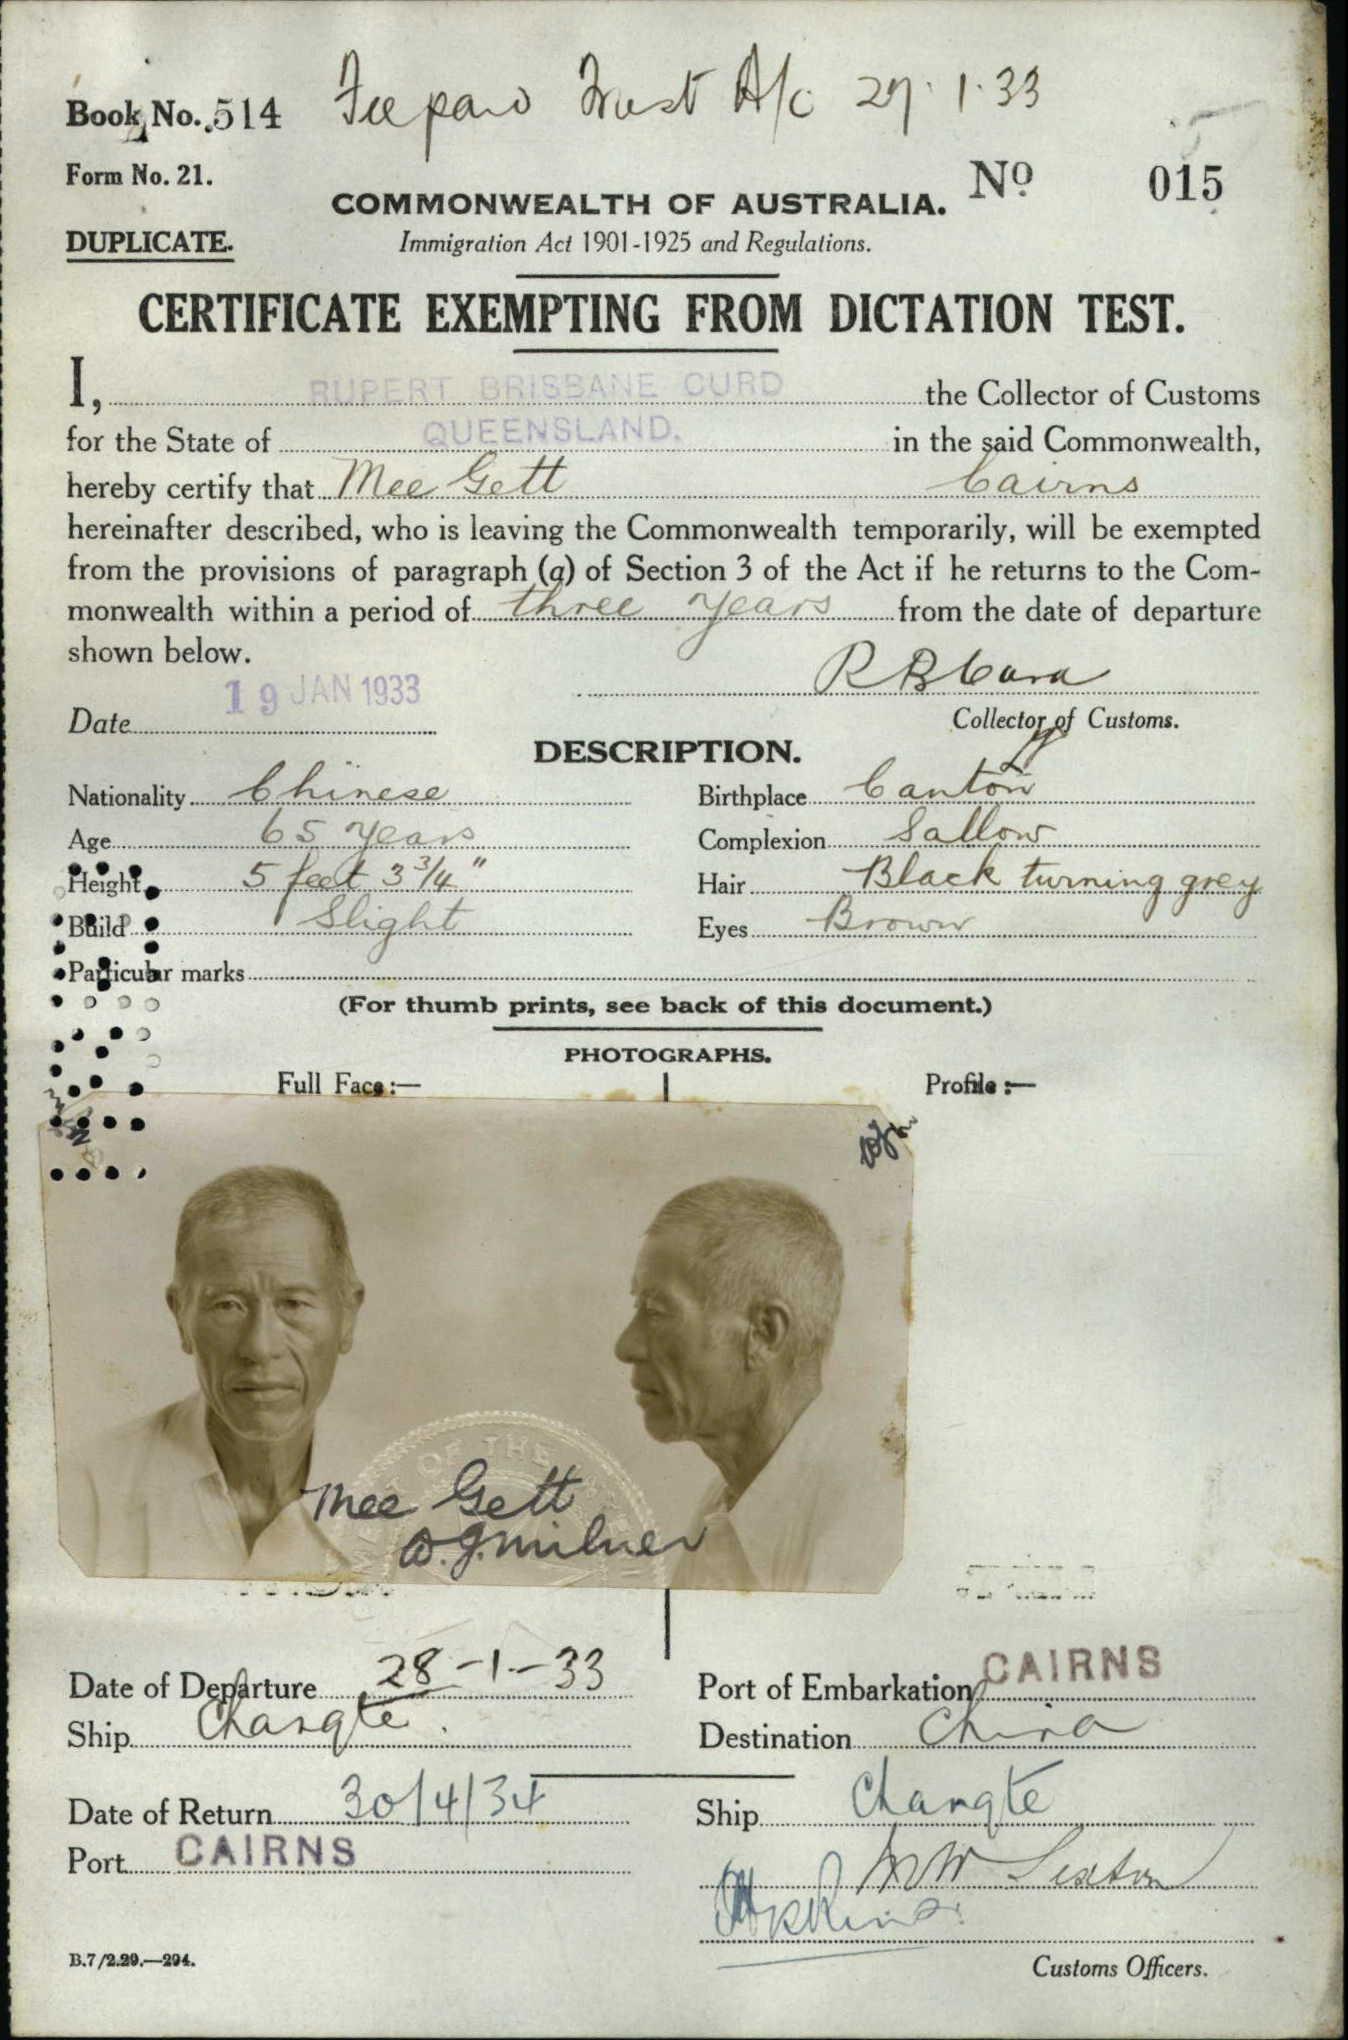 Book No. 514
Fee paid Trust A/c 27.1.33
Form No. 21.
No 015
COMMONWEALTH OF AUSTRALIA.
DUPLICATE.
Immigration Act 1901-1925 and Regulations.
CERTIFICATE EXEMPTING FROM DICTATION TEST.
I, RUPERT BRISBANE CURD the Collector of Customs
for the State of QUEENSLAND. in the said Commonwealth,
hereby certify that Mee Gett Cairns
hereinafter described, who is leaving the Commonwealth temporarily, will be exempted
from the provisions of paragraph (a) of Section 3 of the Act if he returns to the Com-
monwealth within a period of three years from the date of departure
shown below.
R B Curd
19 JAN 1933
Date
Collector of Customs.
DESCRIPTION.
Nationality Chinese Birthplace Canton
Age 65 years Complexion Sallow
Height 5 feet 3 3/4" Hair Black turning grey
Build Slight Eyes Brown
Particular marks
(For thumb prints, see back of this document.)
PHOTOGRAPHS.
Full Face:— Profile:—
OF THE
Mee Gett
W.J. Milner
Date of Departure 28-1-33 Port of Embarkation CAIRNS
Ship Changte. Destination China
Date of Return 30/4/34 Ship Changte
Port CAIRNS
Sexton
B.7/2.29.—294.
Customs Officers.